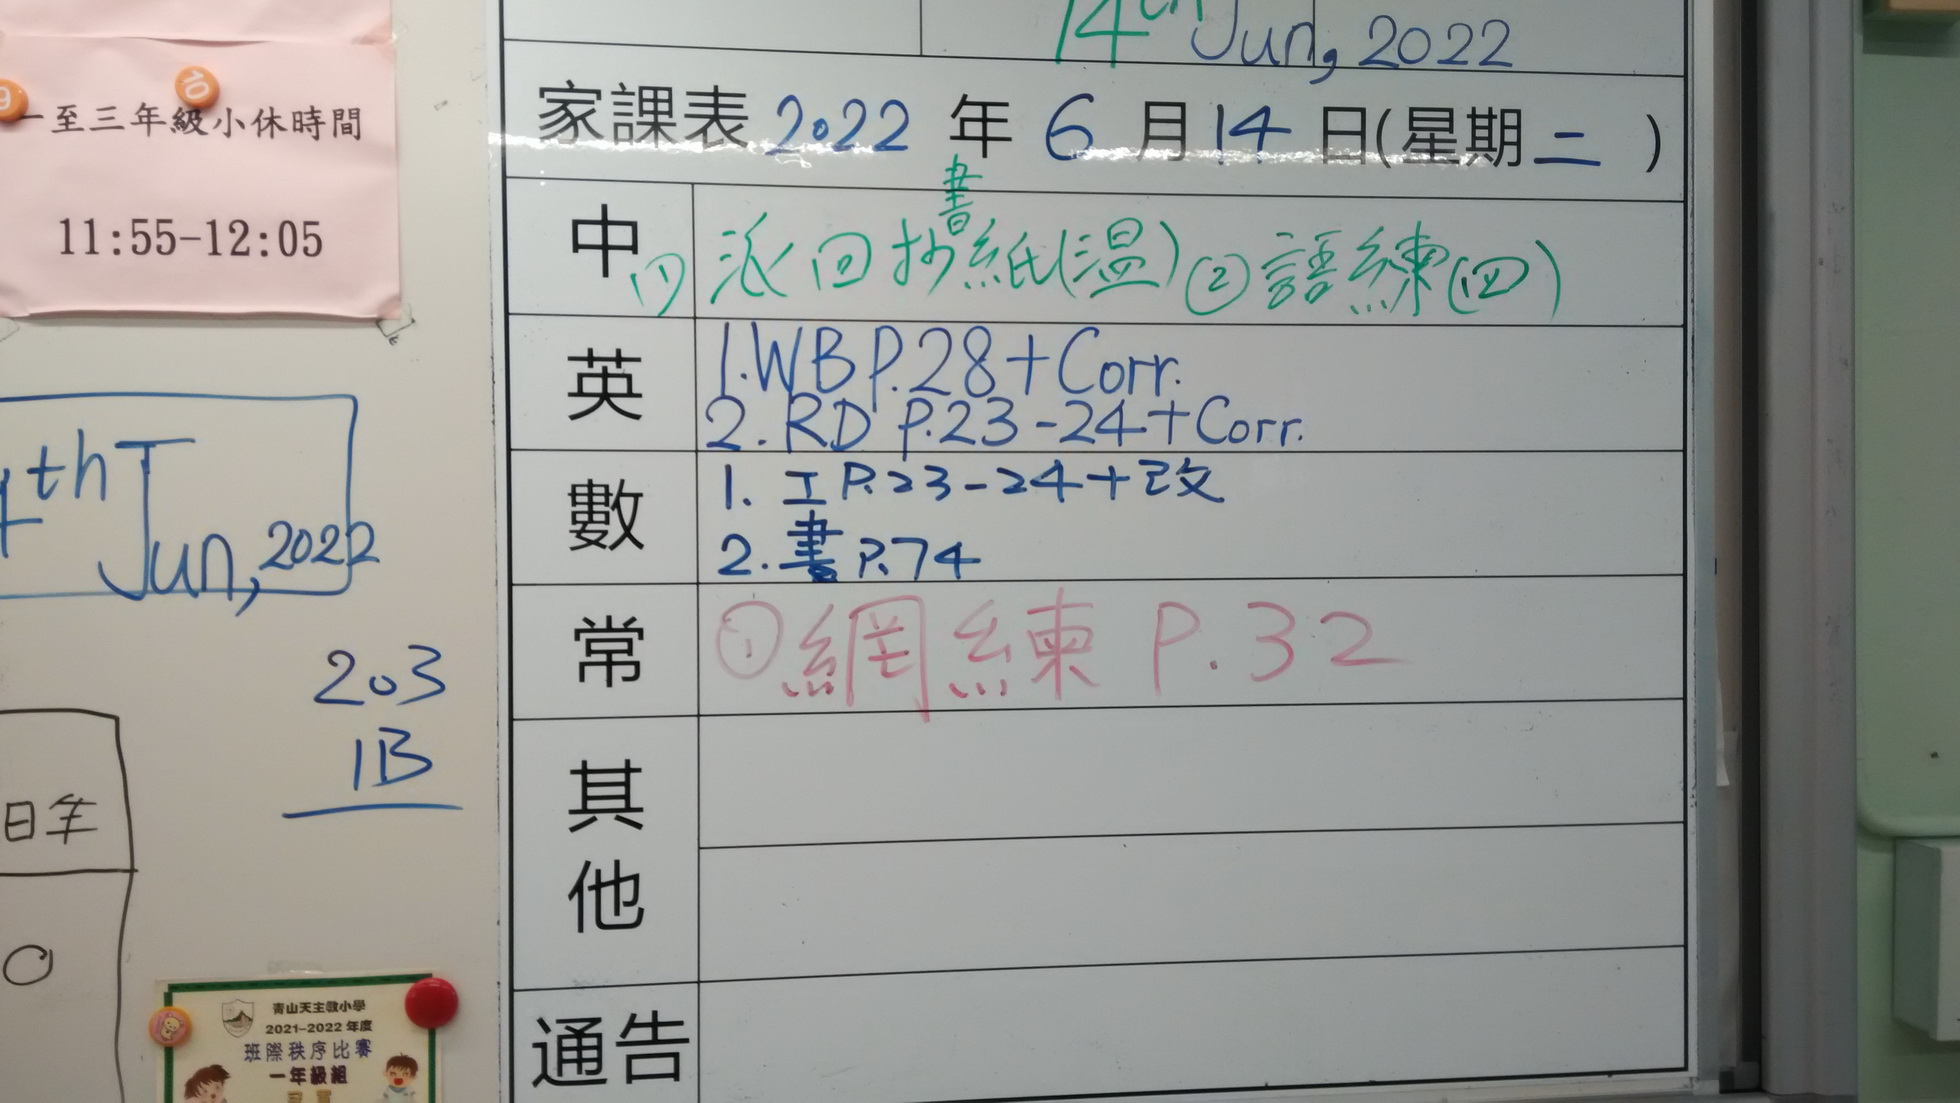 14th Jun, 2022
家課表 2022 年 6 月 14 日(星期二)
中 (1) 派回抄書紙(溫) ② 語練(四)
英 1. WB P.28+Corr.
2. RD P.23-24+Corr.
數 1. 工 P.23-24+改
2. 書 P.74
常 ① 網練 P.32
其他
通告
9
10
一至三年級小休時間
11:55-12:05
4th Jun, 2022
203
1B
日年
青山天主教小學
2021-2022 年度
班際秩序比賽
一年級組